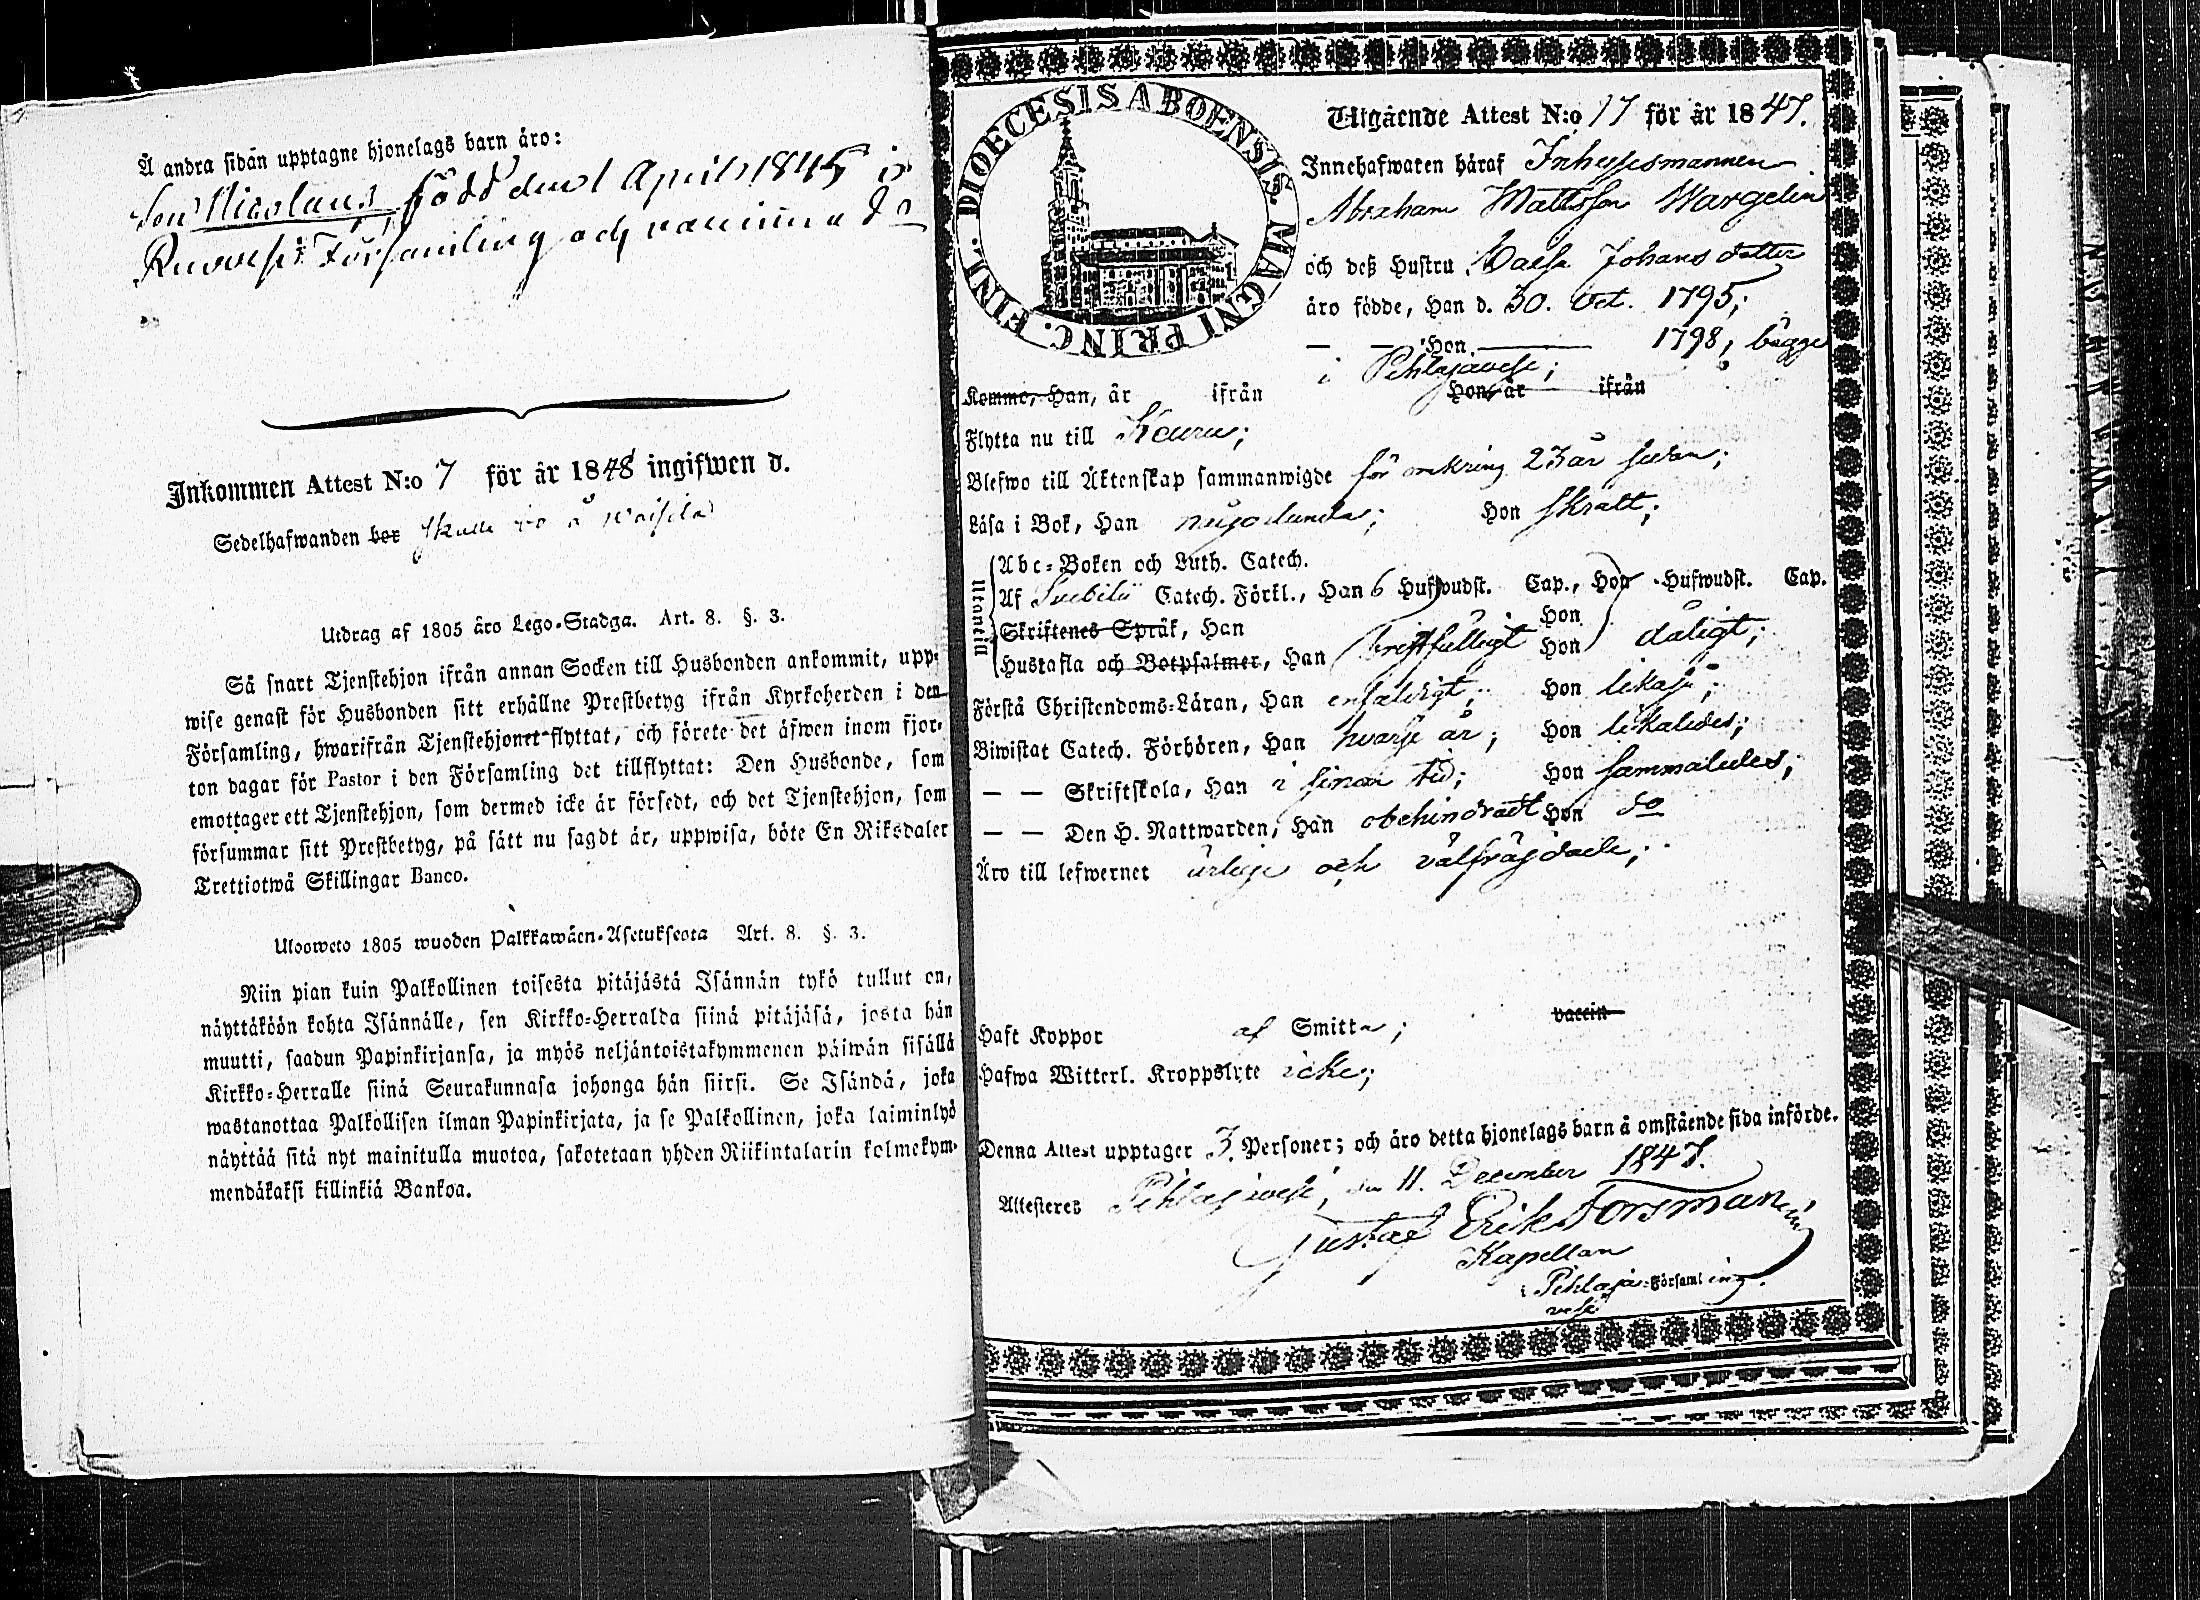 Å andra sidan upptagne hjonelags barn äro:
Son Nicolaus, född den 1 April 1845 i
Ruovesi Församling och vaccinn. do
Inkommen Attest N:o 7 för år 1848 ingifwen d.
Sedelhafwanden bor skall bo å Waisila
Utdrag af 1805 åro Lego-Stadga. Art. 8. §. 3.
Så snart Tjenstehjon ifrån annan Socken till Husbonden ankommit, upp-
wise genast för Husbonden sitt erhållne Prestbetyg ifrån Kyrkoherden i den
Församling, hwarifrån Tjenstehjonet flyttat, och förete det äfwen inom fjor-
ton dagar för Pastor i den Församling det tillflyttat: Den Husbonde, som
emottager ett Tjenstehjon, som dermed icke är försedt, och det Tjenstehjon, som
försummar sitt Prestbetyg, på sätt nu sagdt är, uppwisa, böte En Riksdaler
Trettiotwå Skillingar Banco.
Uloosweto 1805 wuoden Palkkawäen-Asetuksesta Art. 8. §. 3.
Niin pian kuin Palkollinen toisesta pitäjästä Isännän tykö tullut on,
näyttäköön kohta Isännälle, sen Kirkko-Herralda siinä pitäjäsä, josta hän
muutti, saadun Papinkirjansa, ja myös neljäntoistakymmenen päiwän sisällä
Kirkko-Herralle siinä Seurakunnasa johonga hän siirsi. Se Isändä, joka
wastanottaa Palkollisen ilman Papinkirjata, ja se Palkollinen, joka laiminlyö
näyttää sitä nyt mainitulla muotoa, sakotetaan yhden Riikintalarin kolmekym-
mendäkaksi killinkiä Bankoa.
DIOECESIS ABOENSIS. MAGNI PRINC. FINL.
Utgående Attest N:o 17 för år 1847.
Innehafwaren häraf Inhysesmannen
Abraham Mattsson Wargelin
och deß Hustru Caisa Johansdotter
äro födde, Han d. 30. Oct. 1795;
— — Hon 1798, bägge
i Pihlajavesi;
Komme, Han, år ifrån Hon, år ifrån
Flytta nu till Keuru;
Blefwo till Äktenskap sammanwigde för omkring 23 år sedan;
Läsa i Bok, Han någorlunda; Hon skralt;
Utantill
Abc-Boken och Luth. Catech.
Af Svebilii Catech. Förkl., Han 6 Hufwudst. Cap., Hon Hufwudst. Cap.
Skriftenes Språk, Han Hon
Hustafla och Botpsalmer, Han bristfälligt Hon dåligt;
Förstå Christendoms-Läran, Han enfaldigt; Hon likaså;
Biwistat Catech. Förhören, Han hvarje år; Hon likaledes;
— — Skriftskola, Han i sinom tid; Hon sammaledes;
— — Den H. Nattwarden, Han obehindradt Hon do
Äro till lefwernet ärlige och välfrägdade;
Haft Koppor af Smitta; vaccin
Hafwa Witterl. Kroppslyte icke;
Denna Attest upptager 3. Personer; och äro detta hjonelags barn å omstående sida införde.
Attesteres Pihlajavesi, den 11. December 1847.
Gustaf Erik Forsman
Kapellan
i Pihlaja-Församling.
vesi